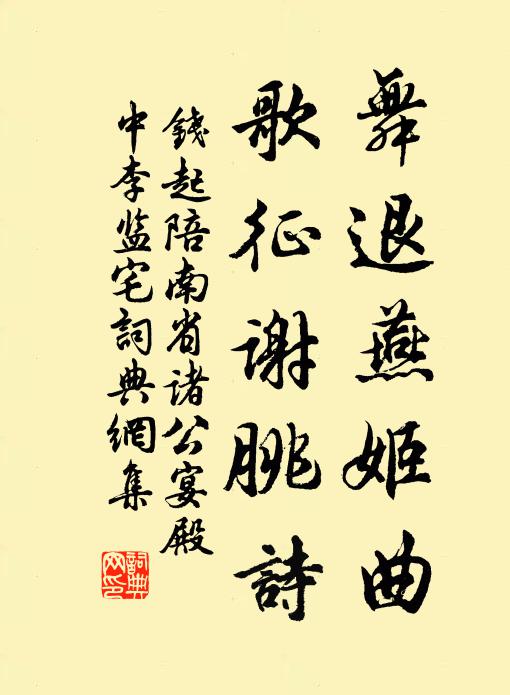 舞退燕姬曲
歌征谢朓詩
錢起陪南省诸公宴殿
中李监宅詞典網集
詞典网印